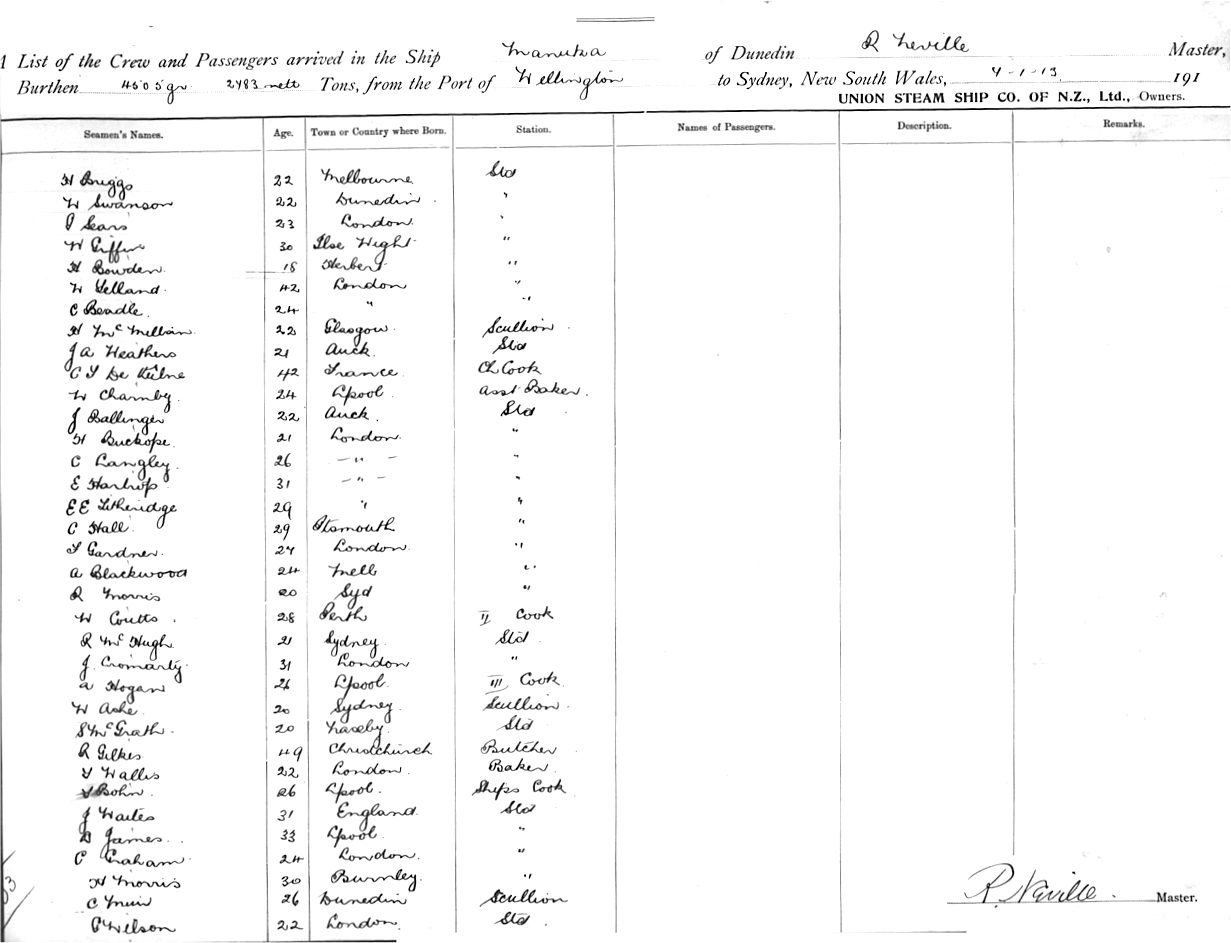 A List of the Crew and Passengers arrived in the Ship Manuka of Dunedin R Neville Master,
Burthen 4505 gr 2483 nett Tons, from the Port of Wellington to Sydney, New South Wales, 4-1-13 191
UNION STEAM SHIP CO. OF N.Z., Ltd., Owners.
Seamen's Names. Age. Town or Country where Born. Station. Names of Passengers. Description. Remarks.
H Briggs 22 Melbourne Std
W Swanson 22 Dunedin "
Sears 23 London "
W Giffin 30 Ilse Wight "
H Bowden 18 Herbert "
W 42 London "
C Beadle 24 " "
H McMillan 22 Glasgow Scullion
J A Heathers 21 Auck Std
C De 42 France Ch Cook
W Charnby 24 Lpool Asst Baker
J Ballinger 22 Auck Std
H Buckope 21 London "
C Langley 26 -"- "
E Hartrop 31 -"- "
E E Litheridge 29 " "
C Hall 29 Ptsmouth "
Gardner 27 London "
A Blackwood 24 Mell "
R Morris 20 Syd "
W Coutts 28 Perth II Cook
R McHugh 21 Sydney Std
J Cromarty 31 London "
A Hogan 26 Lpool III Cook
W Ashe 20 Sydney Scullion
S McGrath 20 Naseby Std
R Gilkes 49 Christchurch Butcher
Wallis 22 London Baker
Bohn 26 Lpool Ships Cook
J Waites 31 England Std
D James 33 Lpool "
C Graham 24 London "
H Morris 30 Burnley "
C Muir 26 Dunedin Scullion
Wilson 22 London Std
R. Neville Master.